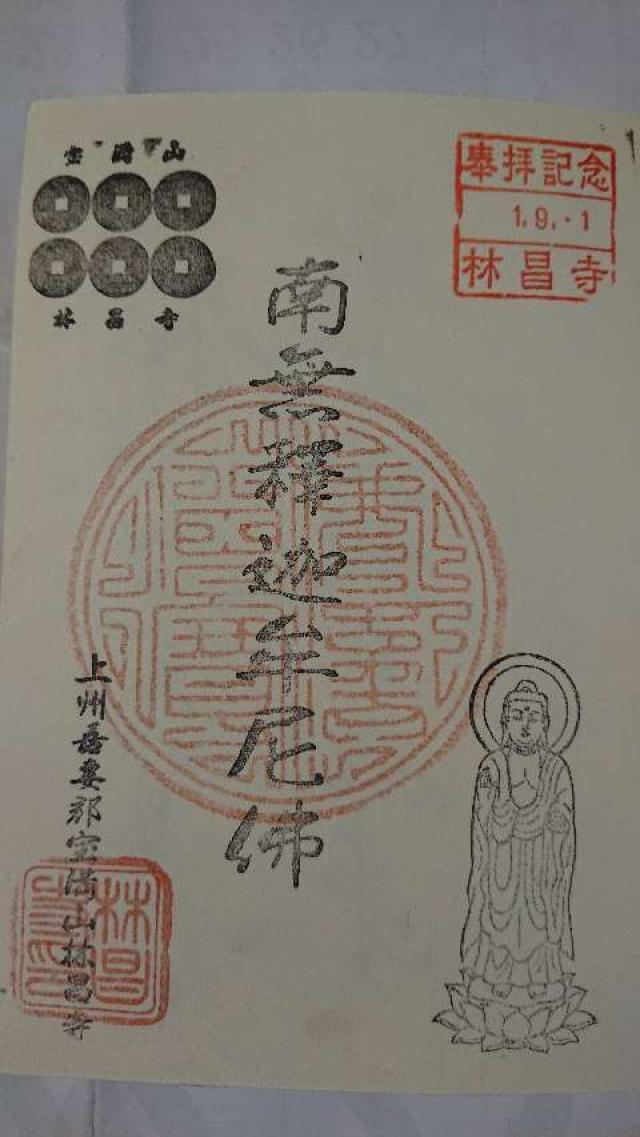 奉拝記念
1.9.-1
林昌寺
宝満山
林昌寺
南無釋迦牟尼佛
上州吾妻郡宝満山林昌寺
林昌
寺印